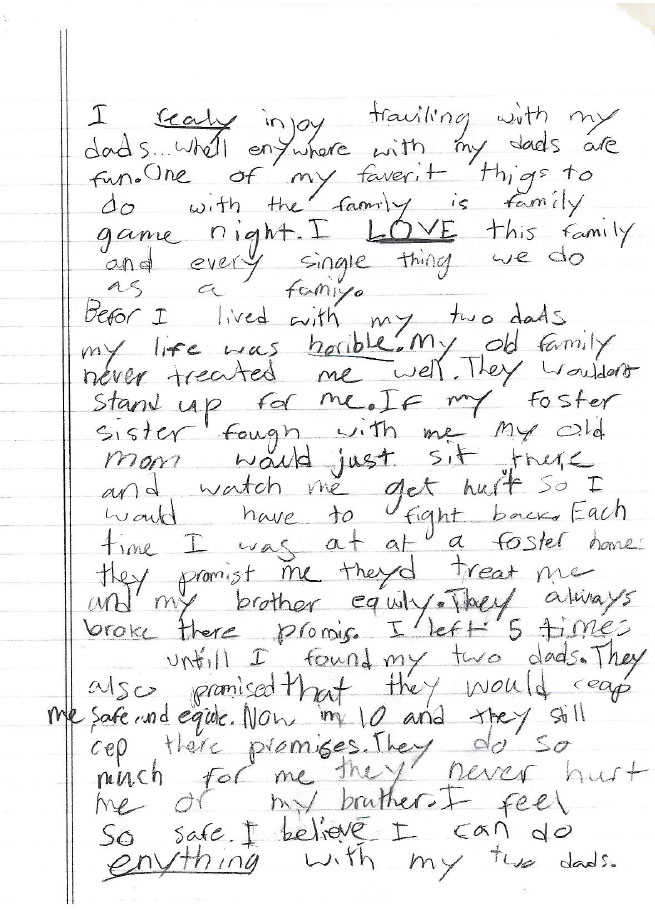 I realy injoy traviling with my
dads...whell enywhere with my dads are
fun. One of my faverit thigs to
do with the family is family
game night. I LOVE this family
and every single thing we do
as a famiy.
Befor I lived with my two dads
my life was horible. My old family
never treated me well. They wouldent
stand up for me. If my foster
sister fough with me my old
mom would just sit there
and watch me get hurt so I
would have to fight back. Each
time I was at at a foster home
they promist me theyd treat me
and my brother equily. They always
broke there promis. I left 5 times
untill I found my two dads. They
also promised that they would ceap
me safe and equle. Now im 10 and they still
cep there promises. They do so
much for me they never hurt
me or my bruther. I feel
so safe. I believe I can do
enything with my two dads.